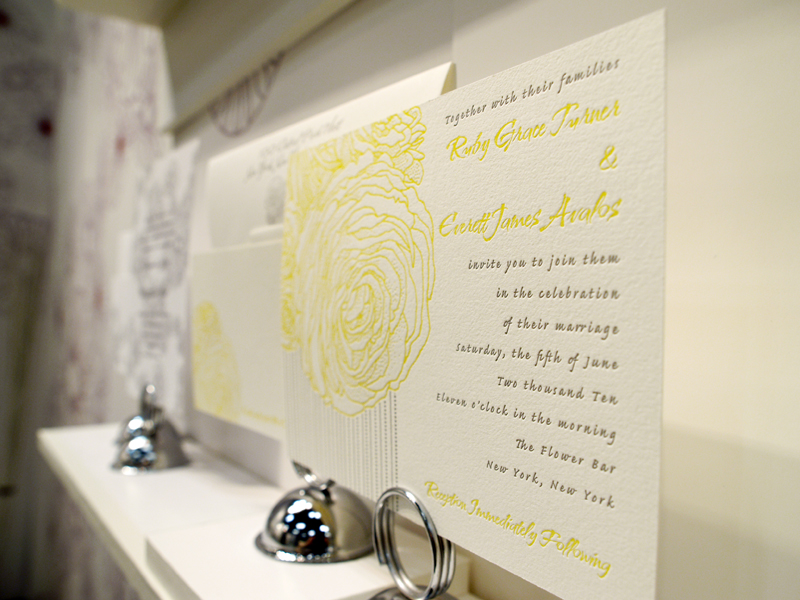 Together with their families
Ruby Grace Turner
&
Everett James Avalos
invite you to join them
in the celebration
of their marriage
Saturday, the fifth of June
Two thousand Ten
Eleven o'clock in the morning
The Flower Bar
New York, New York
Reception Immediately Following